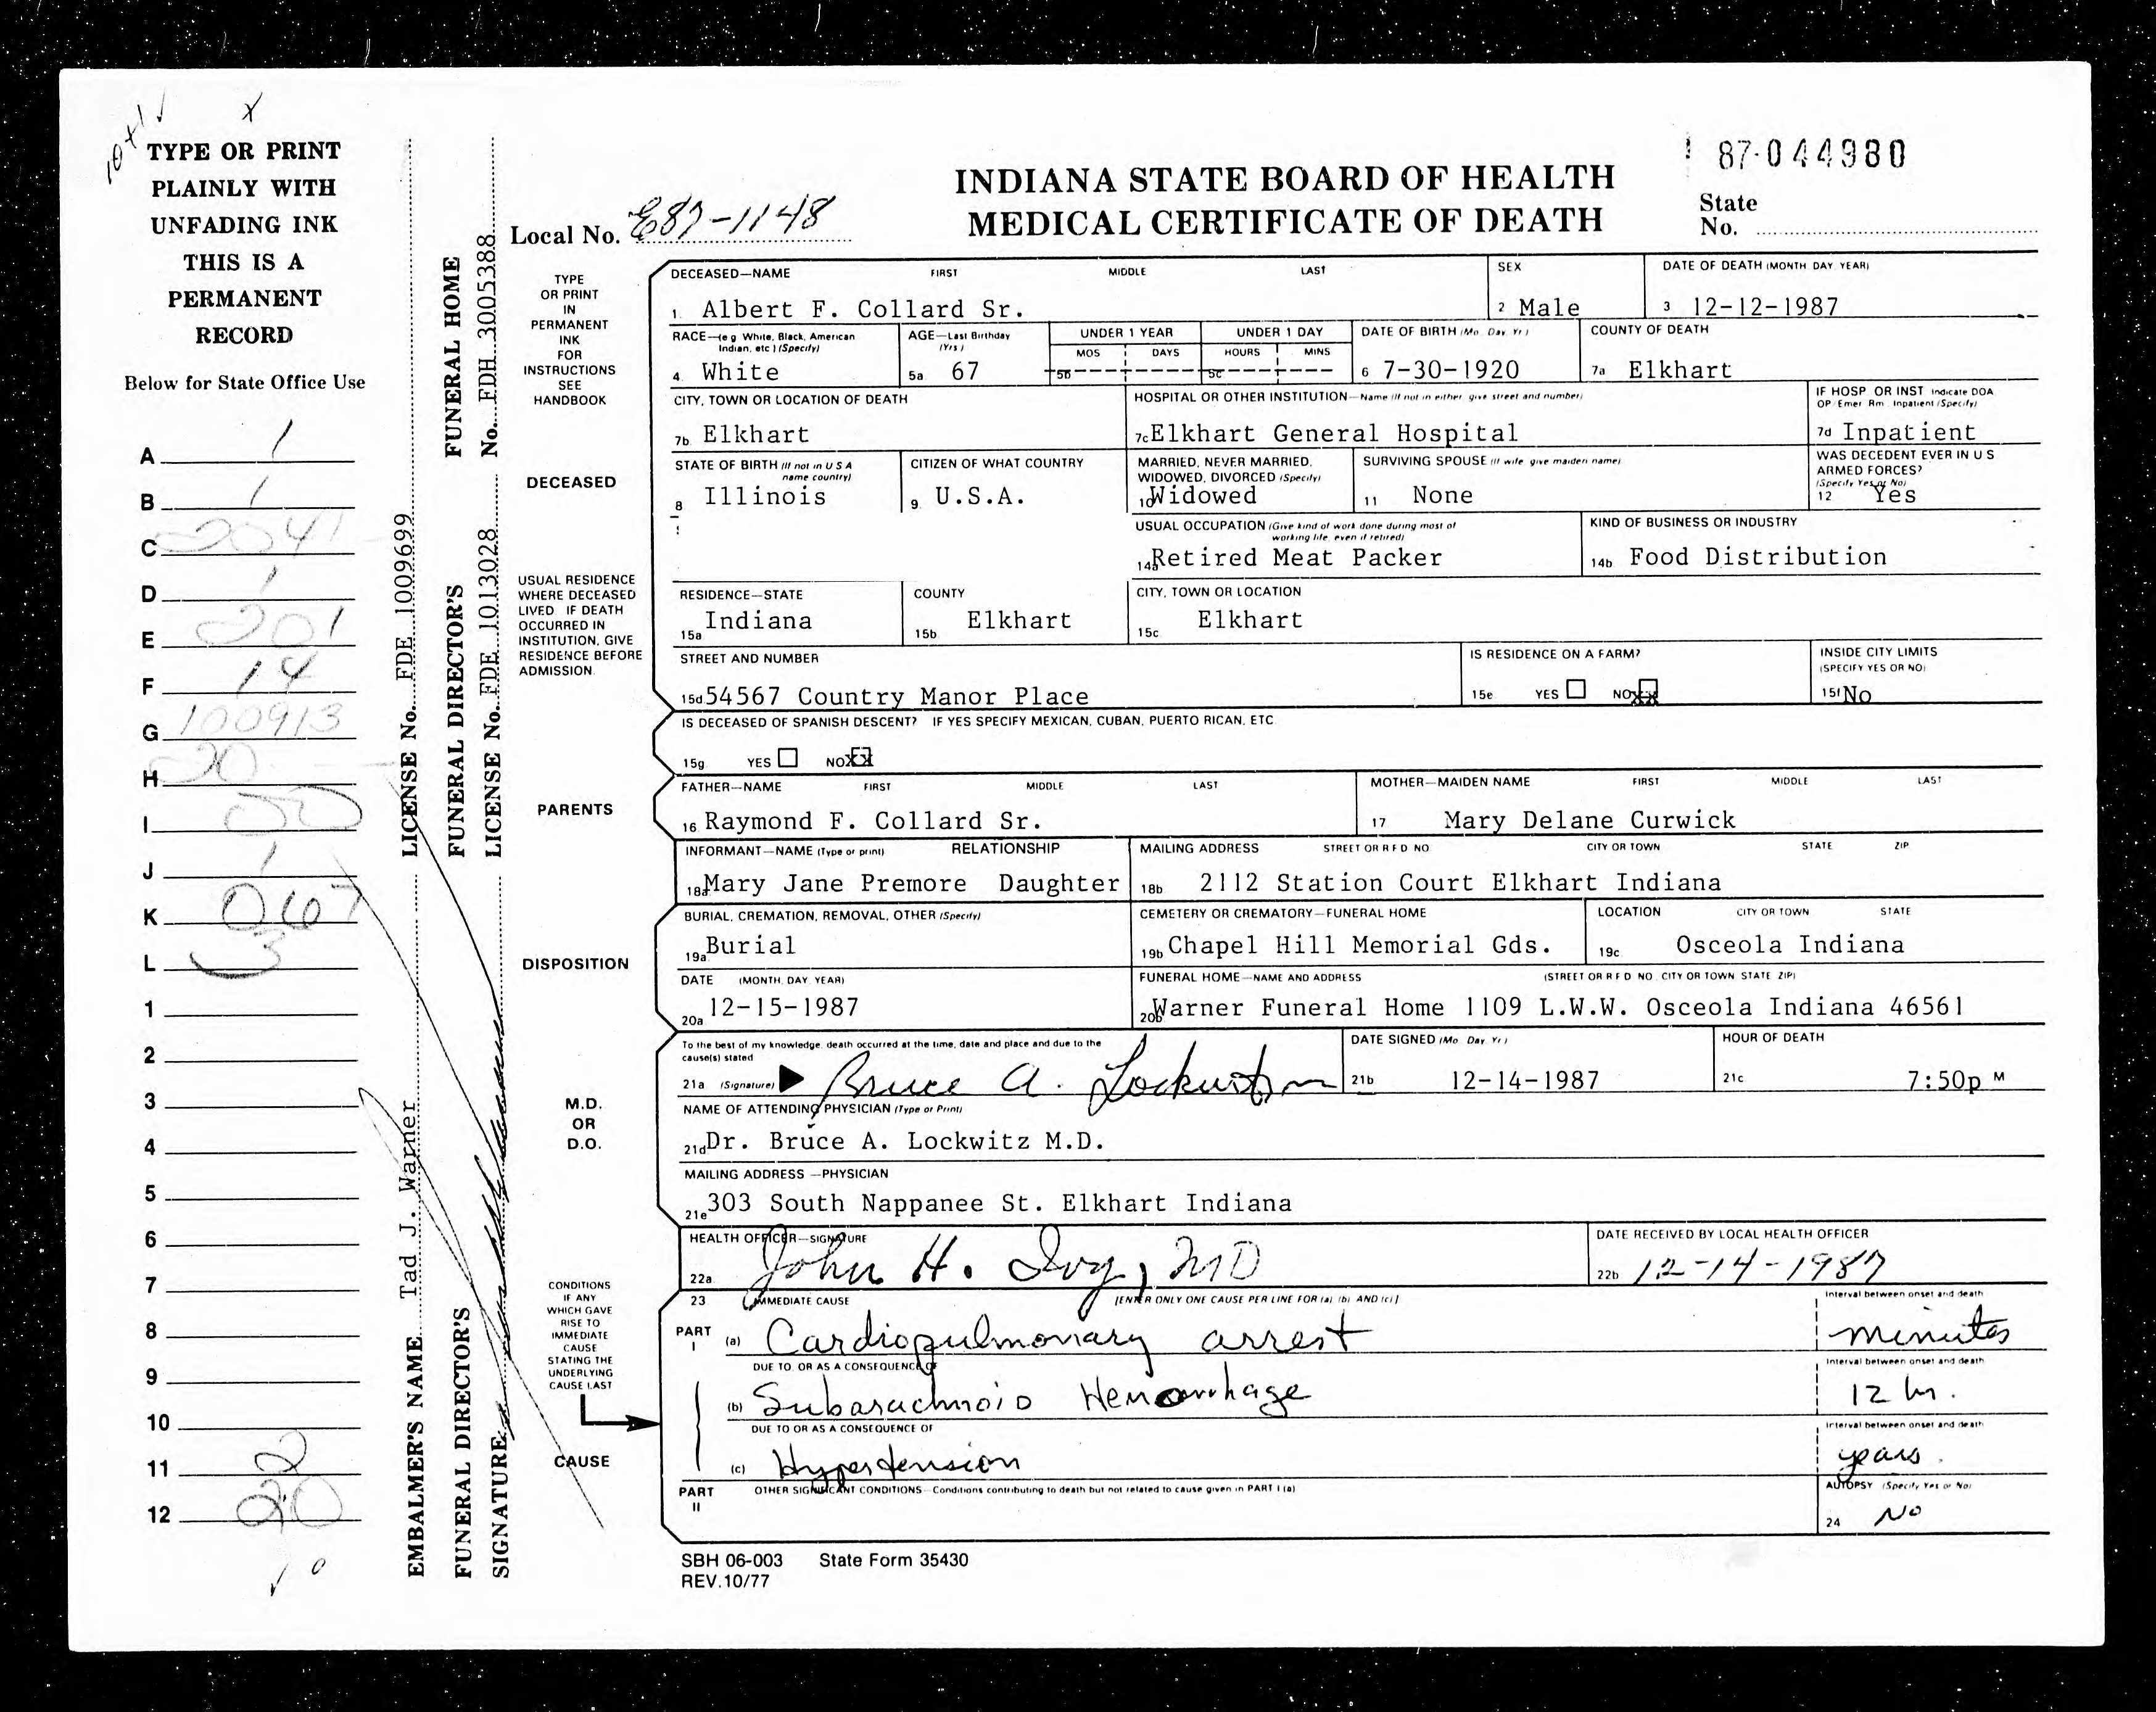 10x1
x
TYPE OR PRINT
PLAINLY WITH
UNFADING INK
THIS IS A
PERMANENT
RECORD
Below for State Office Use
A 1
B 1
C 2041
D 1
E 201
F 14
G 100913
H 20
I 00
J 1
K 067
L 3
1
2
3
4
5
6
7
8
9
10
11 2
12 20
EMBALMER'S NAME Tad J. Warner LICENSE No. FDE 1009699
FUNERAL DIRECTOR'S SIGNATURE
FUNERAL DIRECTOR'S LICENSE No. FDE 1013028
FUNERAL HOME No. FDH 3005388
Local No. E87-1148
INDIANA STATE BOARD OF HEALTH
MEDICAL CERTIFICATE OF DEATH
87-044980
State
No.
TYPE
OR PRINT
IN
PERMANENT
INK
FOR
INSTRUCTIONS
SEE
HANDBOOK
DECEASED
DECEASED—NAME FIRST MIDDLE LAST
1. Albert F. Collard Sr.
SEX
2 Male
DATE OF DEATH (MONTH DAY YEAR)
3 12-12-1987
RACE—(e g White, Black, American
Indian, etc ) (Specify)
4. White
AGE—Last Birthday
(Yrs )
5a 67
UNDER 1 YEAR
MOS DAYS
5b
UNDER 1 DAY
HOURS MINS
5c
DATE OF BIRTH (Mo Day Yr )
6 7-30-1920
COUNTY OF DEATH
7a Elkhart
CITY, TOWN OR LOCATION OF DEATH
7b. Elkhart
HOSPITAL OR OTHER INSTITUTION—Name (If not in either, give street and number)
7c Elkhart General Hospital
IF HOSP OR INST Indicate DOA
OP Emer Rm Inpatient (Specify)
7d Inpatient
STATE OF BIRTH (If not in U S A
name country)
8 Illinois
CITIZEN OF WHAT COUNTRY
9. U.S.A.
MARRIED, NEVER MARRIED,
WIDOWED, DIVORCED (Specify)
10 Widowed
SURVIVING SPOUSE (If wife give maiden name)
11 None
WAS DECEDENT EVER IN U S
ARMED FORCES?
(Specify Yes or No)
12 Yes
USUAL OCCUPATION (Give kind of work done during most of
working life, even if retired)
14a Retired Meat Packer
KIND OF BUSINESS OR INDUSTRY
14b Food Distribution
USUAL RESIDENCE
WHERE DECEASED
LIVED IF DEATH
OCCURRED IN
INSTITUTION, GIVE
RESIDENCE BEFORE
ADMISSION
RESIDENCE—STATE
15a Indiana
COUNTY
15b Elkhart
CITY, TOWN OR LOCATION
15c Elkhart
STREET AND NUMBER
15d 54567 Country Manor Place
IS RESIDENCE ON A FARM?
15e YES NO XX
INSIDE CITY LIMITS
(SPECIFY YES OR NO)
15f No
IS DECEASED OF SPANISH DESCENT? IF YES SPECIFY MEXICAN, CUBAN, PUERTO RICAN, ETC
15g YES NO XX
PARENTS
FATHER—NAME FIRST MIDDLE LAST
16 Raymond F. Collard Sr.
MOTHER—MAIDEN NAME FIRST MIDDLE LAST
17 Mary Delane Curwick
INFORMANT—NAME (Type or print) RELATIONSHIP
18a Mary Jane Premore Daughter
MAILING ADDRESS STREET OR R F D NO CITY OR TOWN STATE ZIP
18b 2112 Station Court Elkhart Indiana
DISPOSITION
BURIAL, CREMATION, REMOVAL, OTHER (Specify)
19a Burial
CEMETERY OR CREMATORY—FUNERAL HOME
19b Chapel Hill Memorial Gds.
LOCATION CITY OR TOWN STATE
19c Osceola Indiana
DATE (MONTH, DAY YEAR)
20a 12-15-1987
FUNERAL HOME—NAME AND ADDRESS (STREET OR R F D NO CITY OR TOWN STATE ZIP)
20b Warner Funeral Home 1109 L.W.W. Osceola Indiana 46561
M.D.
OR
D.O.
To the best of my knowledge, death occurred at the time, date and place and due to the
cause(s) stated
21a (Signature) Bruce A. Lockwitz
DATE SIGNED (Mo Day Yr )
21b 12-14-1987
HOUR OF DEATH
21c 7:50p M
NAME OF ATTENDING PHYSICIAN (Type or Print)
21d Dr. Bruce A. Lockwitz M.D.
MAILING ADDRESS —PHYSICIAN
21e 303 South Nappanee St. Elkhart Indiana
HEALTH OFFICER—SIGNATURE
22a John H. Ivy, MD
DATE RECEIVED BY LOCAL HEALTH OFFICER
22b 12-14-1987
CONDITIONS
IF ANY
WHICH GAVE
RISE TO
IMMEDIATE
CAUSE
STATING THE
UNDERLYING
CAUSE LAST
CAUSE
23 IMMEDIATE CAUSE [ENTER ONLY ONE CAUSE PER LINE FOR (a) (b) AND (c)]
PART I (a) Cardiopulmonary arrest
Interval between onset and death
minutes
DUE TO, OR AS A CONSEQUENCE OF
(b) Subarachnoid Hemorrhage
Interval between onset and death
12 hr.
DUE TO OR AS A CONSEQUENCE OF
(c) Hypertension
Interval between onset and death
years.
PART II OTHER SIGNIFICANT CONDITIONS—Conditions contributing to death but not related to cause given in PART I (a)
AUTOPSY (Specify Yes or No)
24 No
SBH 06-003 State Form 35430
REV.10/77